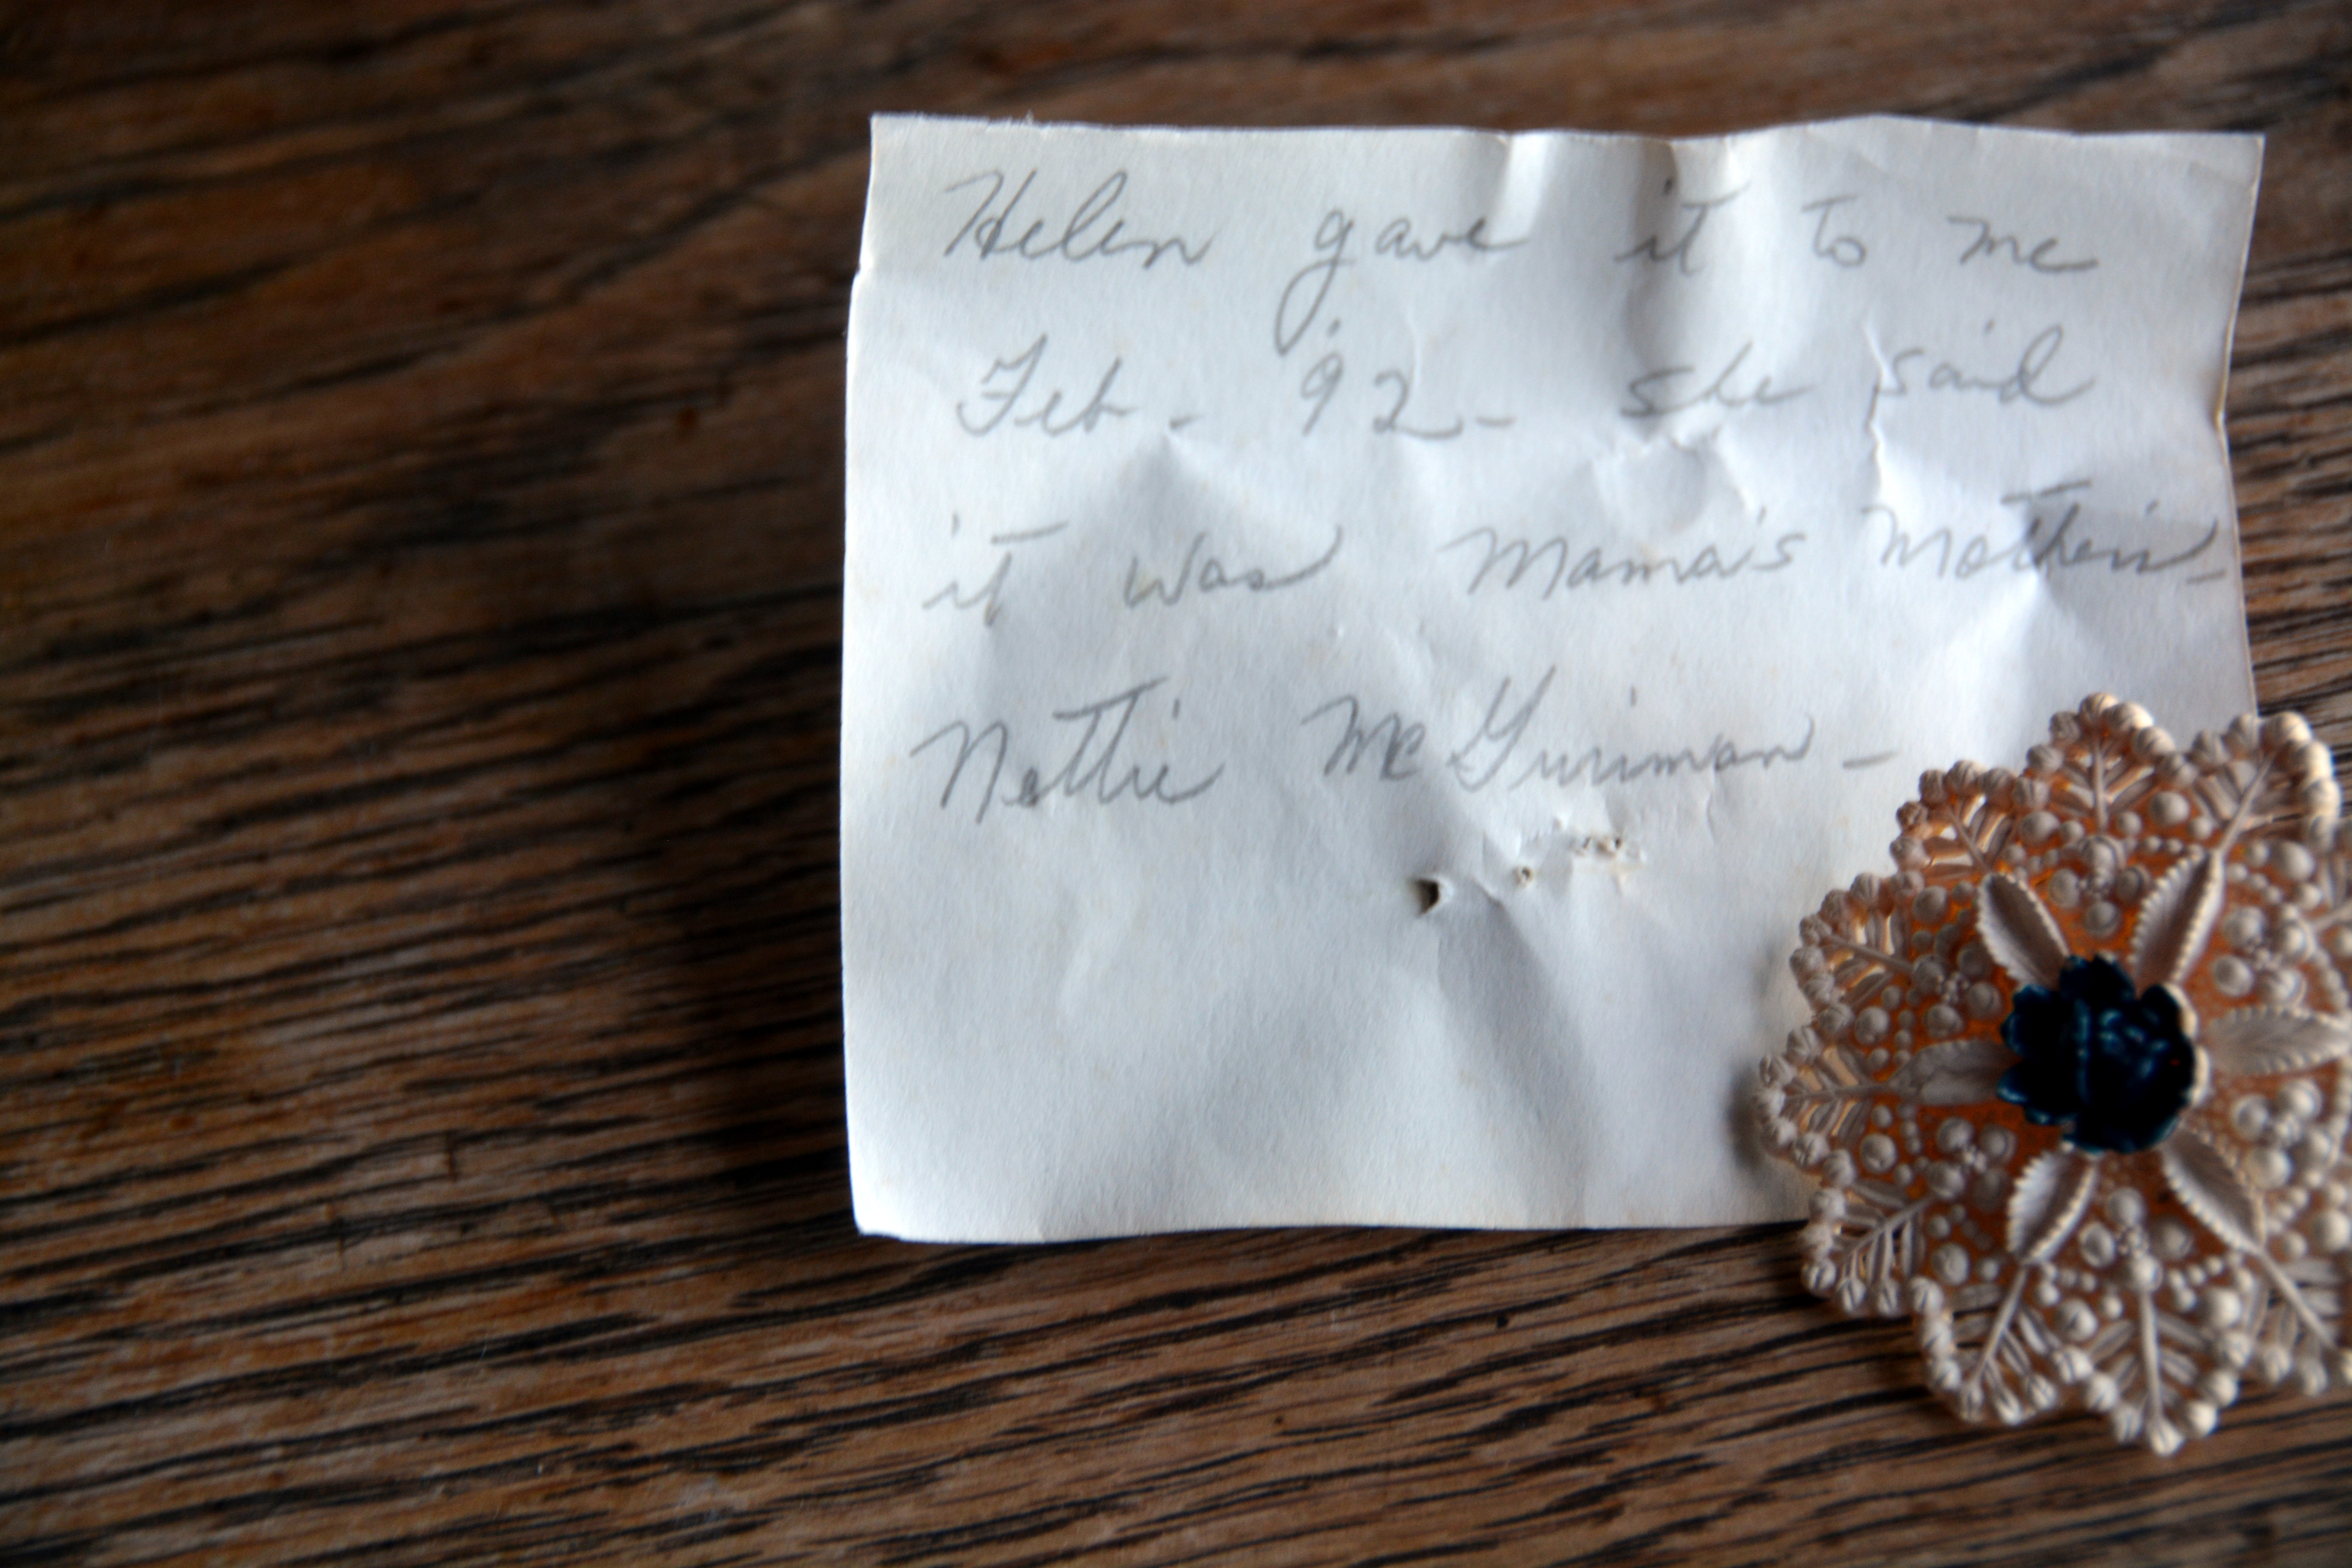 Helen gave it to me
Feb - '92 - she said
it was Mama's Mother's -
Nettie Mc -